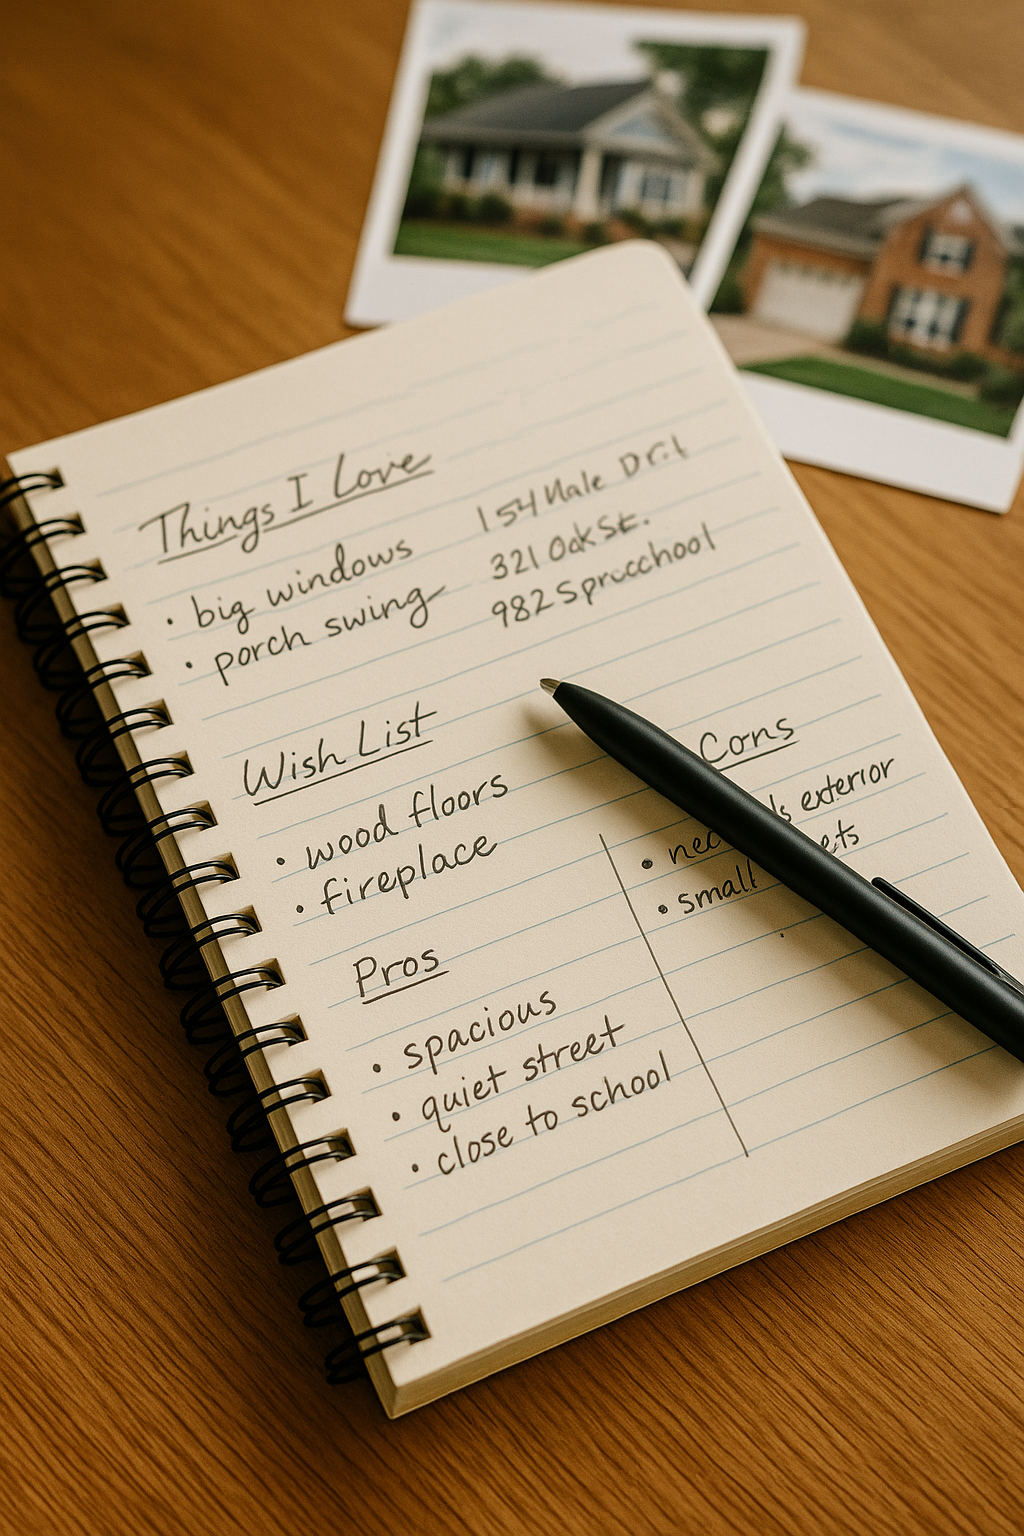 Things I Love
• big windows
• porch swing
154 Dr.
321 Oak St.
982
Wish List
• wood floors
• fireplace
Pros
• spacious
• quiet street
• close to school
Cons
• exterior
• small